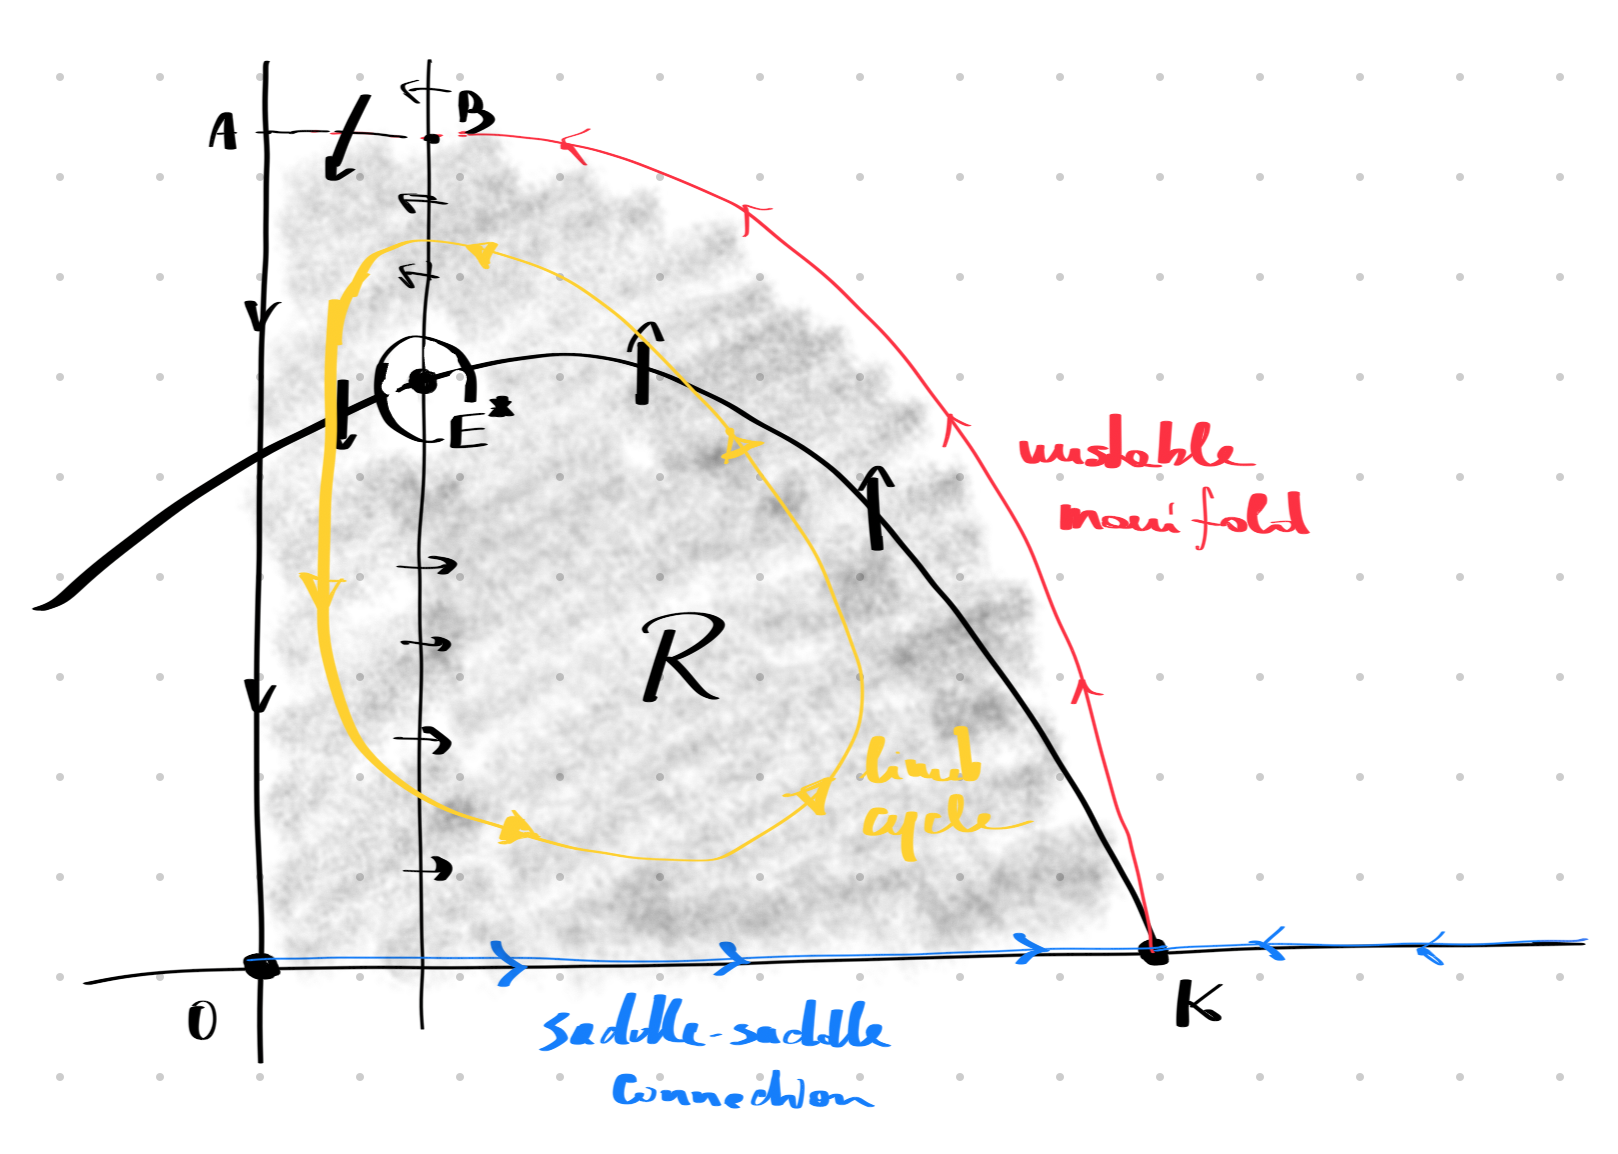 A
B
E*
unstable
manifold
R
limit
cycle
O
K
saddle-saddle
connection